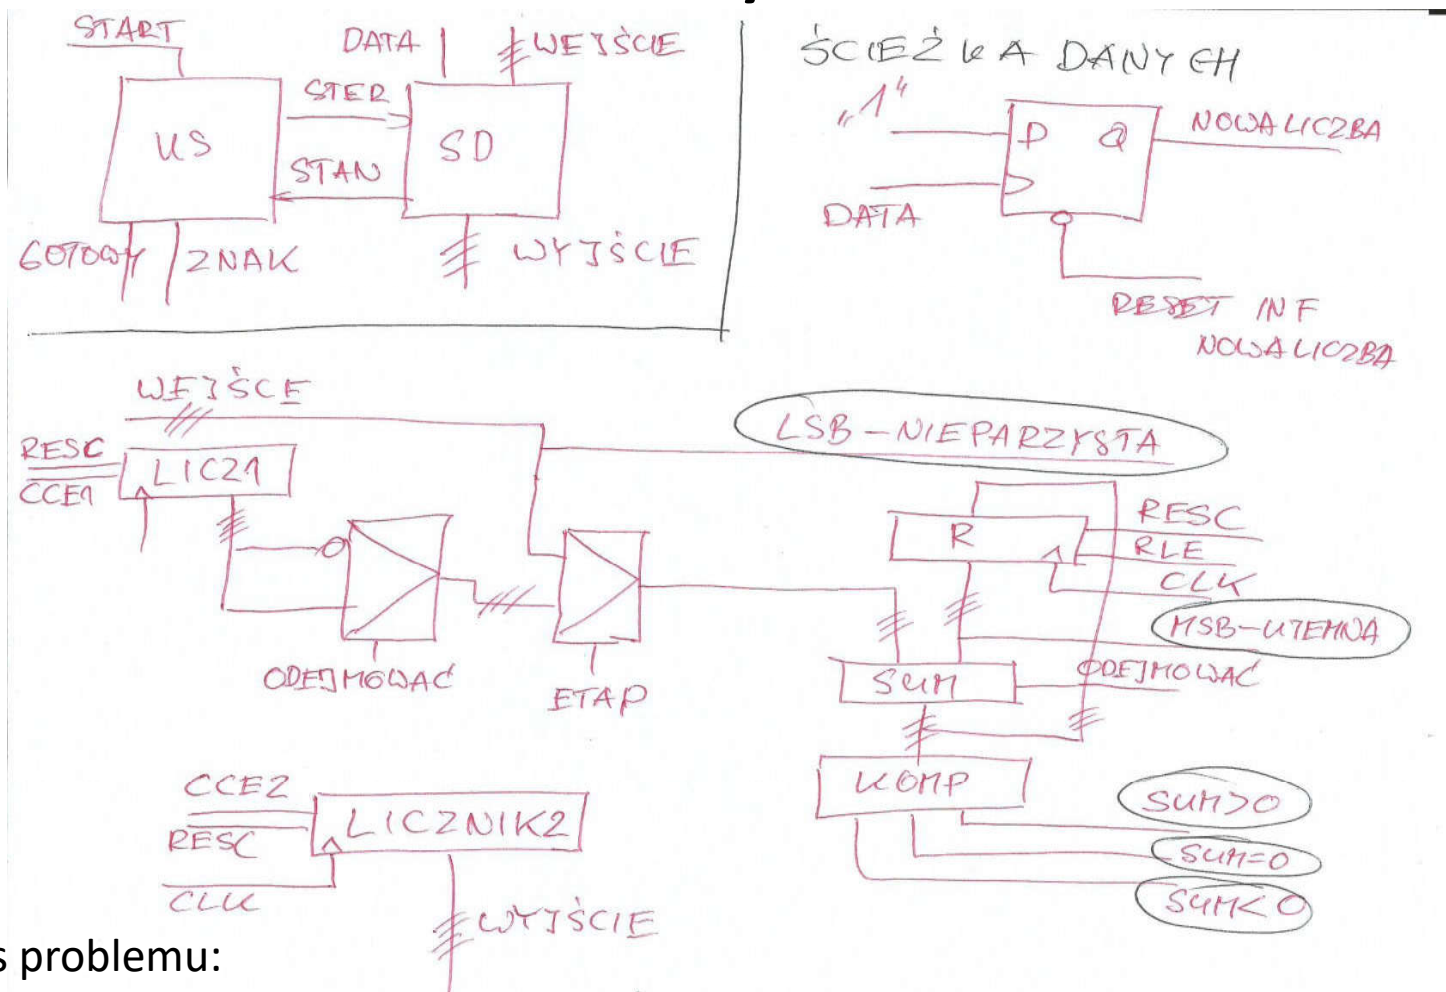 START
DATA
WEJŚCIE
STER
US
SD
STAN
GOTOWY
ZNAK
WYJŚCIE
ŚCIEŻKA DANYCH
„1“
D Q
NOWALICZBA
DATA
RESET INF
NOWALICZBA
WEJŚCE
LSB-NIEPARZYSTA
RESC
CCE1
LICZ1
ODEJMOWAĆ
ETAP
R
RESC
RLE
CLK
MSB-UJEMNA
SUM
ODEJMOWAĆ
KOMP
SUM>0
SUM=0
SUM<0
CCE2
RESC
CLK
LICZNIK2
WYJŚCIE
s problemu: